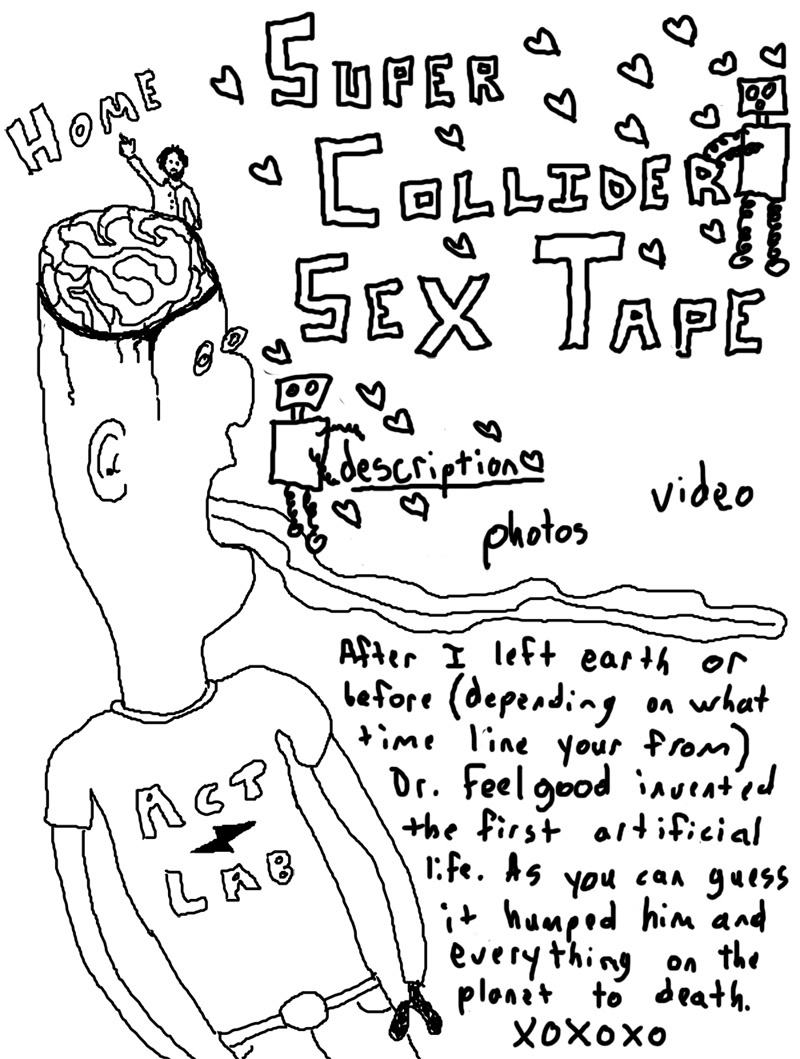 HOME
SUPER
COLLIDER
SEX TAPE
description
video
photos
After I left earth or
before (depending on what
time line your from)
Dr. Feelgood invented
the first artificial
life. As you can guess
it humped him and
everything on the
planet to death.
XOXOXO
ACT
LAB